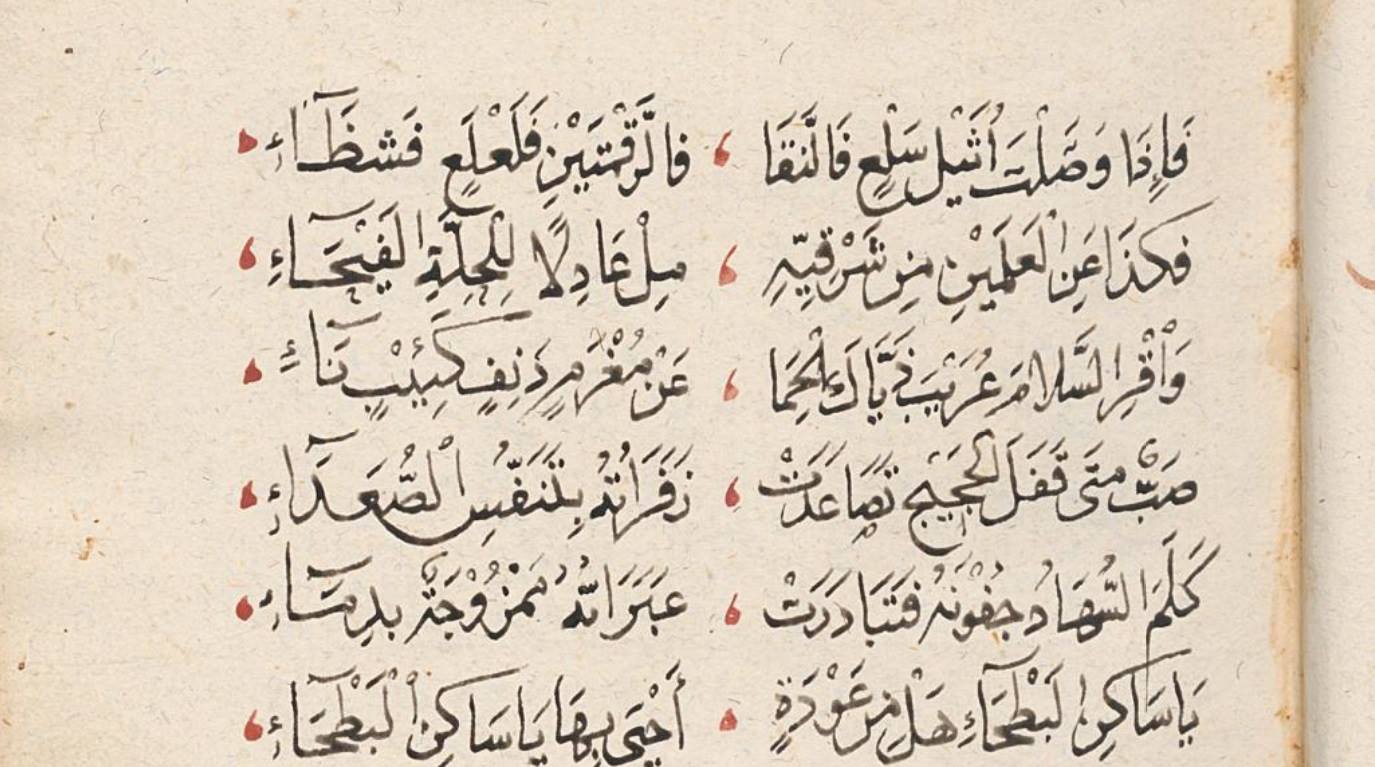 فَإِذَا وَصَلْتَ أُثَيْلَ سَلْعٍ فَالنَّقَا ، فَالرَّقْمَتَيْنِ فَلَعْلَعٍ فَشَظَآءِ
فَكَذَا عَنِ الْعَلَمَيْنِ مِن شَرْقِيِّهِ ، مِلْ عَادِلًا لِلْحِلَّةِ الْفَيْحَآءِ
وَاْقْرِ السَّلَامَ عُرَيْبَ ذَيَّاكَ الْحِمَا ، عَنْ مُغْرَمٍ دَنِفٍ كَئِيْبٍ نَآءِ
صَبٍّ مَتَى قَفَلَ الْحَجِيجُ تَصَاعَدَتْ ، زَفَرَاتُهُ بِتَنَفُّسِ الْصُّعَدَآءِ
كَلَمَ السُّهَادُ جُفُوْنَهُ فَتَبَادَرَتْ ، عَبَرَاتُهُ مَمْزُوْجَةً بِدِمَآءِ
يَا سَاكِنِ الْبَطْحَآءِ هَلْ مِنْ عَوْدَةٍ ، أَحْيَى بِهَا يَا سَاكِنِ الْبَطْحَآءِ